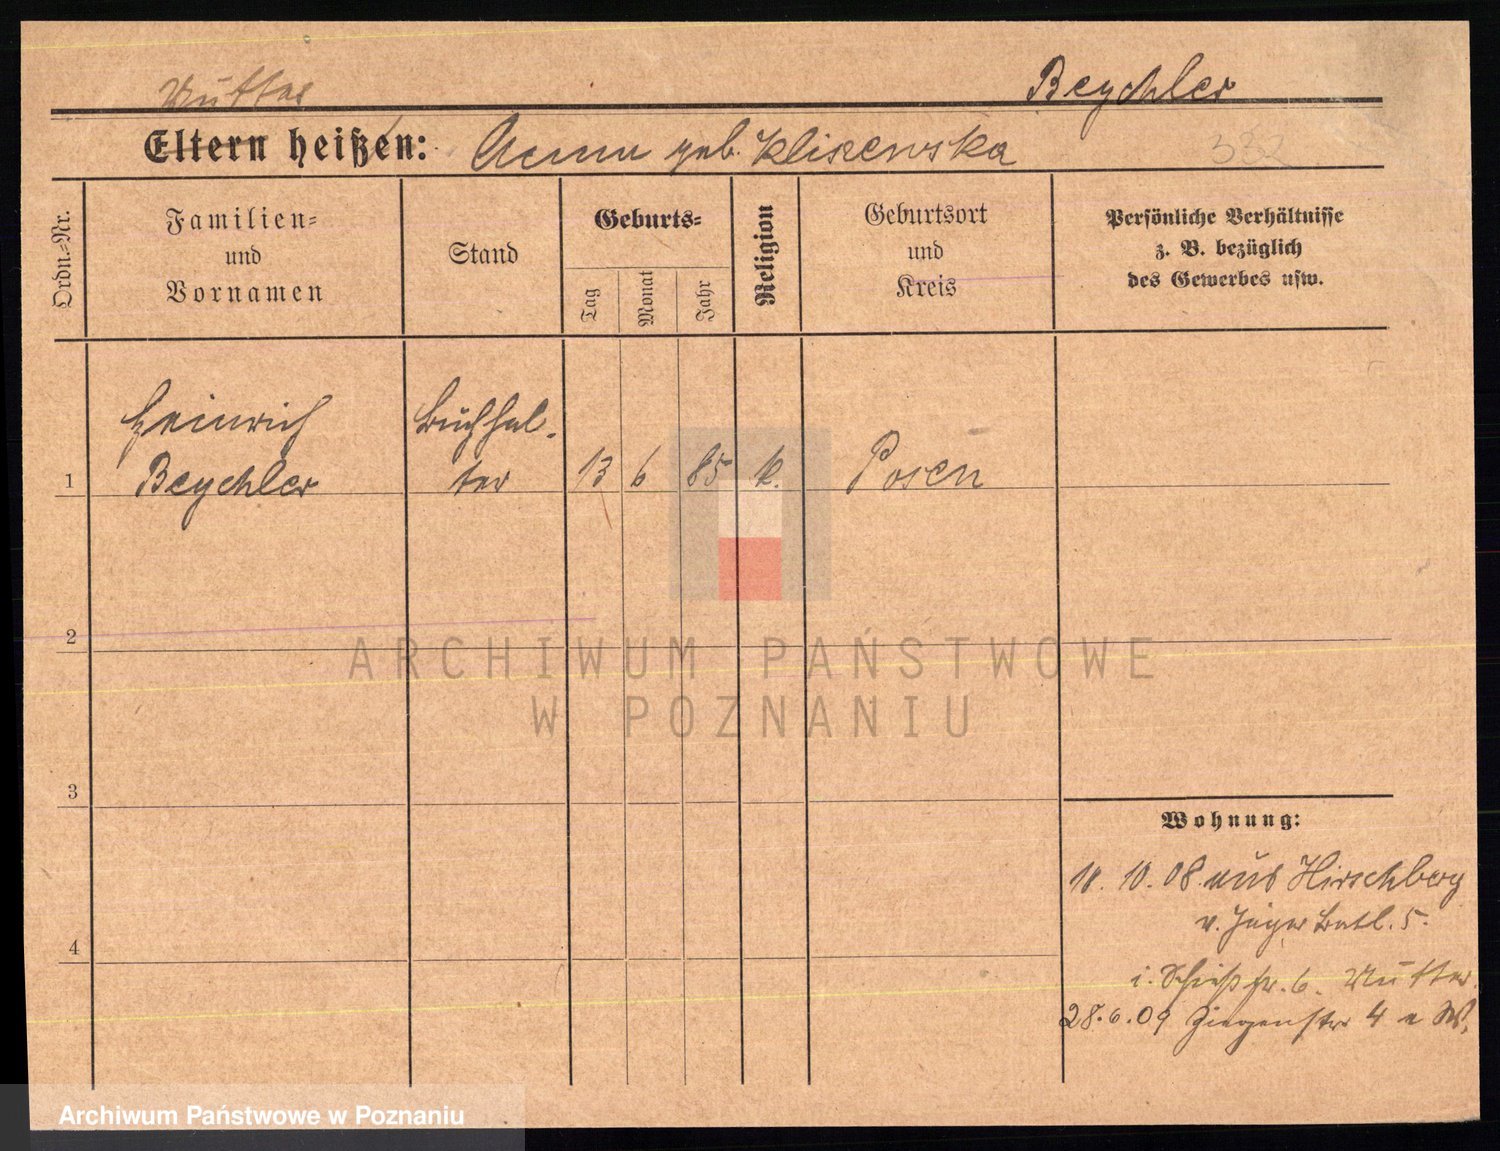 Mutter
Beychler
Eltern heißen: Anna geb. Kliszewska
332
Ordn.-Nr.
Familien-
und
Vornamen
Stand
Geburts-
Tag
Monat
Jahr
Religion
Geburtsort
und
Kreis
Persönliche Verhältnisse
z. B. bezüglich
des Gewerbes usw.
Heinrich
Beychler
Buchhal-
ter
1
13
6
85
k.
Posen
2
ARCHIWUM PAŃSTWOWE
W POZNANIU
3
Wohnung:
10. 08. aus Hirschberg
v. Jäger Batl. 5.
4
i. Schießstr. 6. Mutter
28.6.09 Ziegenstr 4 e W.
Archiwum Państwowe w Poznaniu